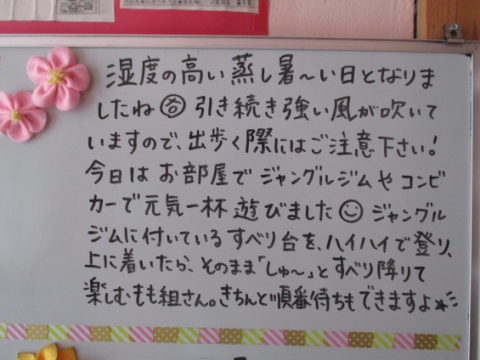 湿度の高い蒸し暑〜い日となりま
したね 引き続き強い風が吹いて
いますので、出歩く際にはご注意下さい!
今日はお部屋でジャングルジムやコンビ
カーで元気一杯遊びました☺ジャングル
ジムに付いているすべり台を、ハイハイで登り、
上に着いたら、そのまま「しゅ〜」とすべり降りて
楽しむもも組さん。きちんと順番待ちもできますよ★